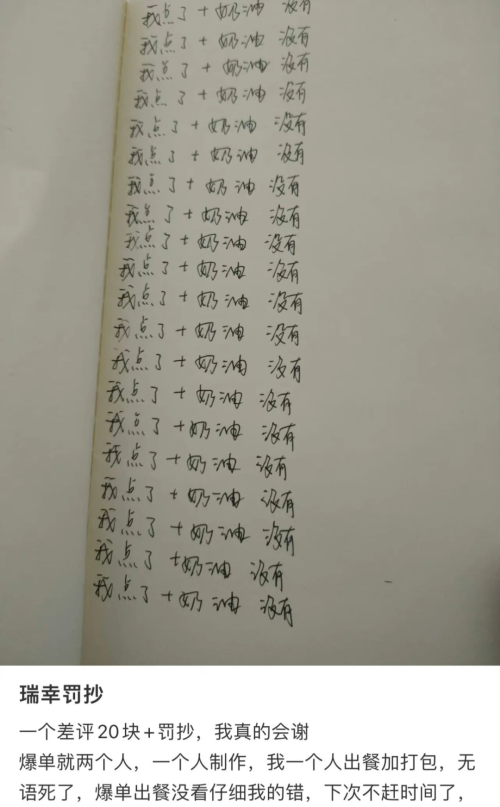 我点了+奶油 没有
我点了+奶油 没有
我点了+奶油 没有
我点了+奶油 没有
我点了+奶油 没有
我点了+奶油 没有
我点了+奶油 没有
我点了+奶油 没有
我点了+奶油 没有
我点了+奶油 没有
我点了+奶油 没有
我点了+奶油 没有
我点了+奶油 没有
我点了+奶油 没有
我点了+奶油 没有
我点了+奶油 没有
我点了+奶油 没有
我点了+奶油 没有
我点了+奶油 没有
我点了+奶油 没有
瑞幸罚抄
一个差评20块+罚抄，我真的会谢
爆单就两个人，一个人制作，我一个人出餐加打包，无
语死了，爆单出餐没看仔细我的错，下次不赶时间了，